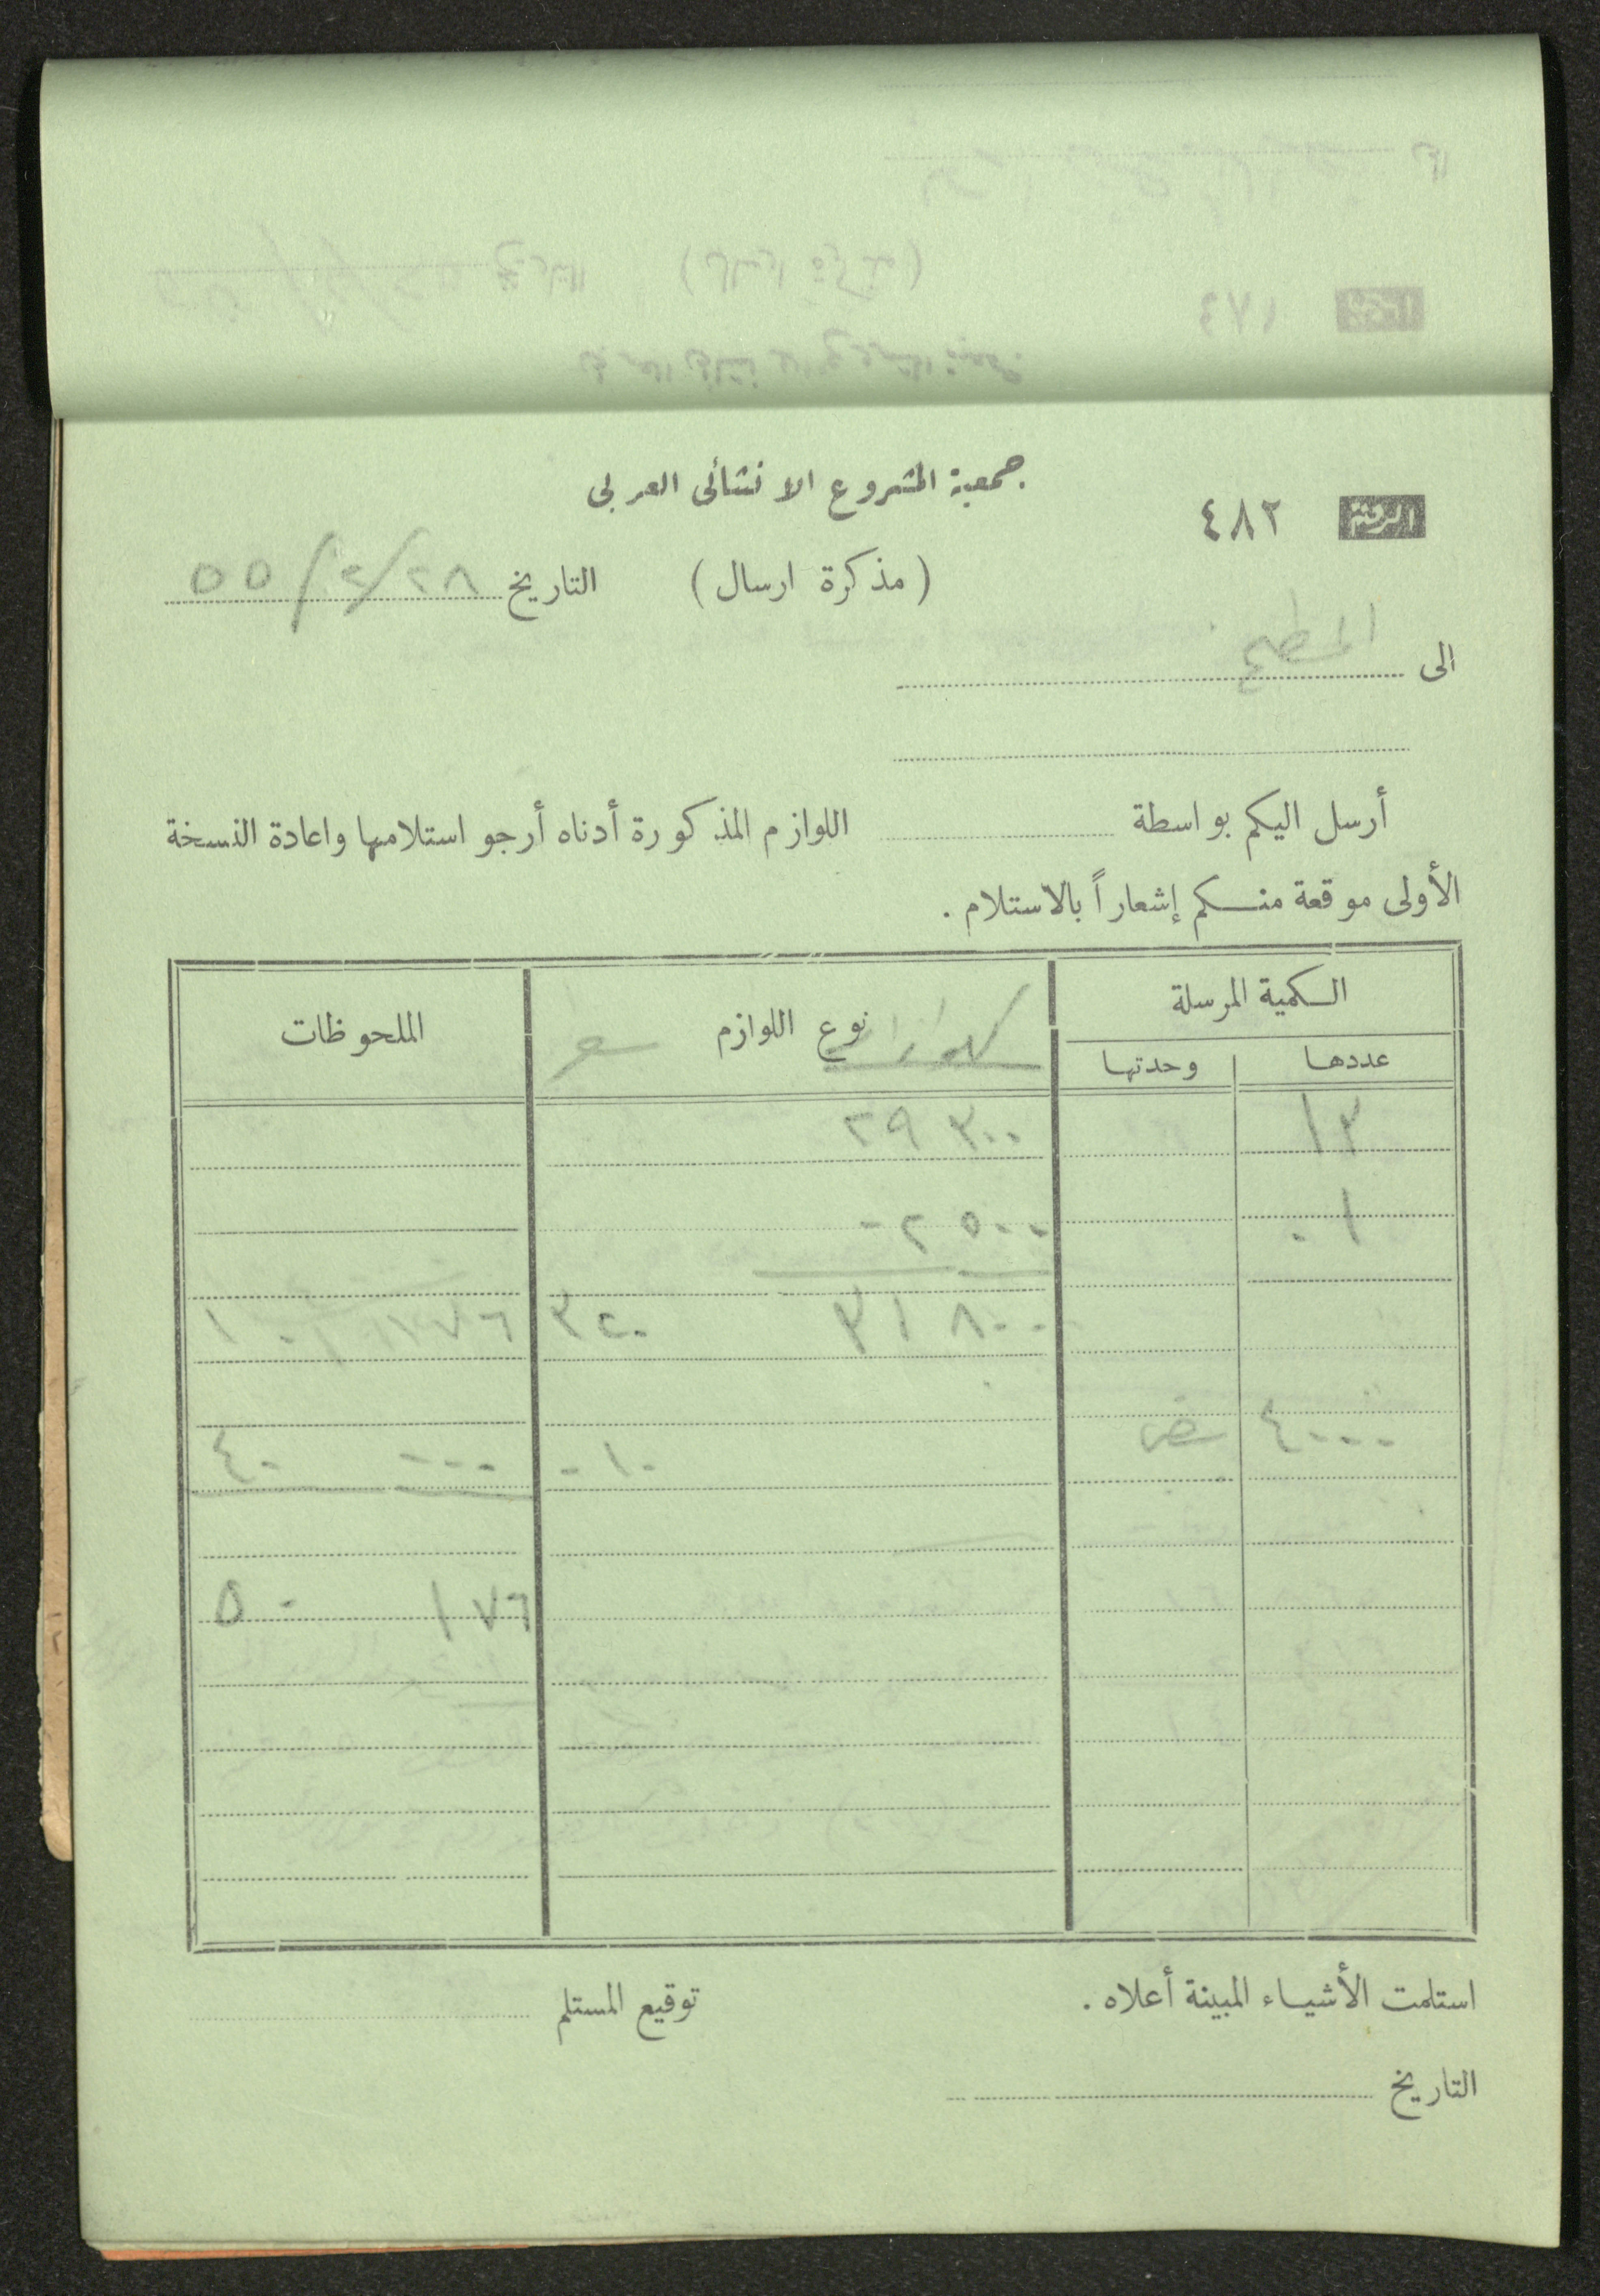 جمعية المشروع الانشائي العربي
الرقم ٤٨٢
(مذكرة ارسال) التاريخ ٢٨/٢/٥٥
الى المطبخ
أرسل اليكم بواسطة اللوازم المذكورة أدناه أرجو استلامها واعادة النسخة
الأولى موقعة منكم إشعاراً بالاستلام .
الكمية المرسلة نوع اللوازم الملحوظات
عددها وحدتها
١٣ ٢٩ ٣٠٠
١٠ ٢ ٥٠٠
٣١ ٨٠٠ ٣٢٠
٤٠٠٠ ٠١٠ ٤٠ ٠٠٠
٥٠ ١٧٦
استلمت الأشياء المبينة أعلاه . توقيع المستلم
التاريخ